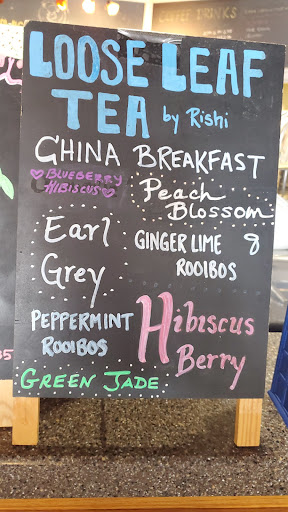 COFFEE DRINKS
LOOSE LEAF
TEA by Rishi
CHINA BREAKFAST
BLUEBERRY
HIBISCUS
Peach
Blossom
Earl
Grey
GINGER LIME &
ROOIBOS
PEPPERMINT
ROOIBOS
Hibiscus
Berry
GREEN JADE